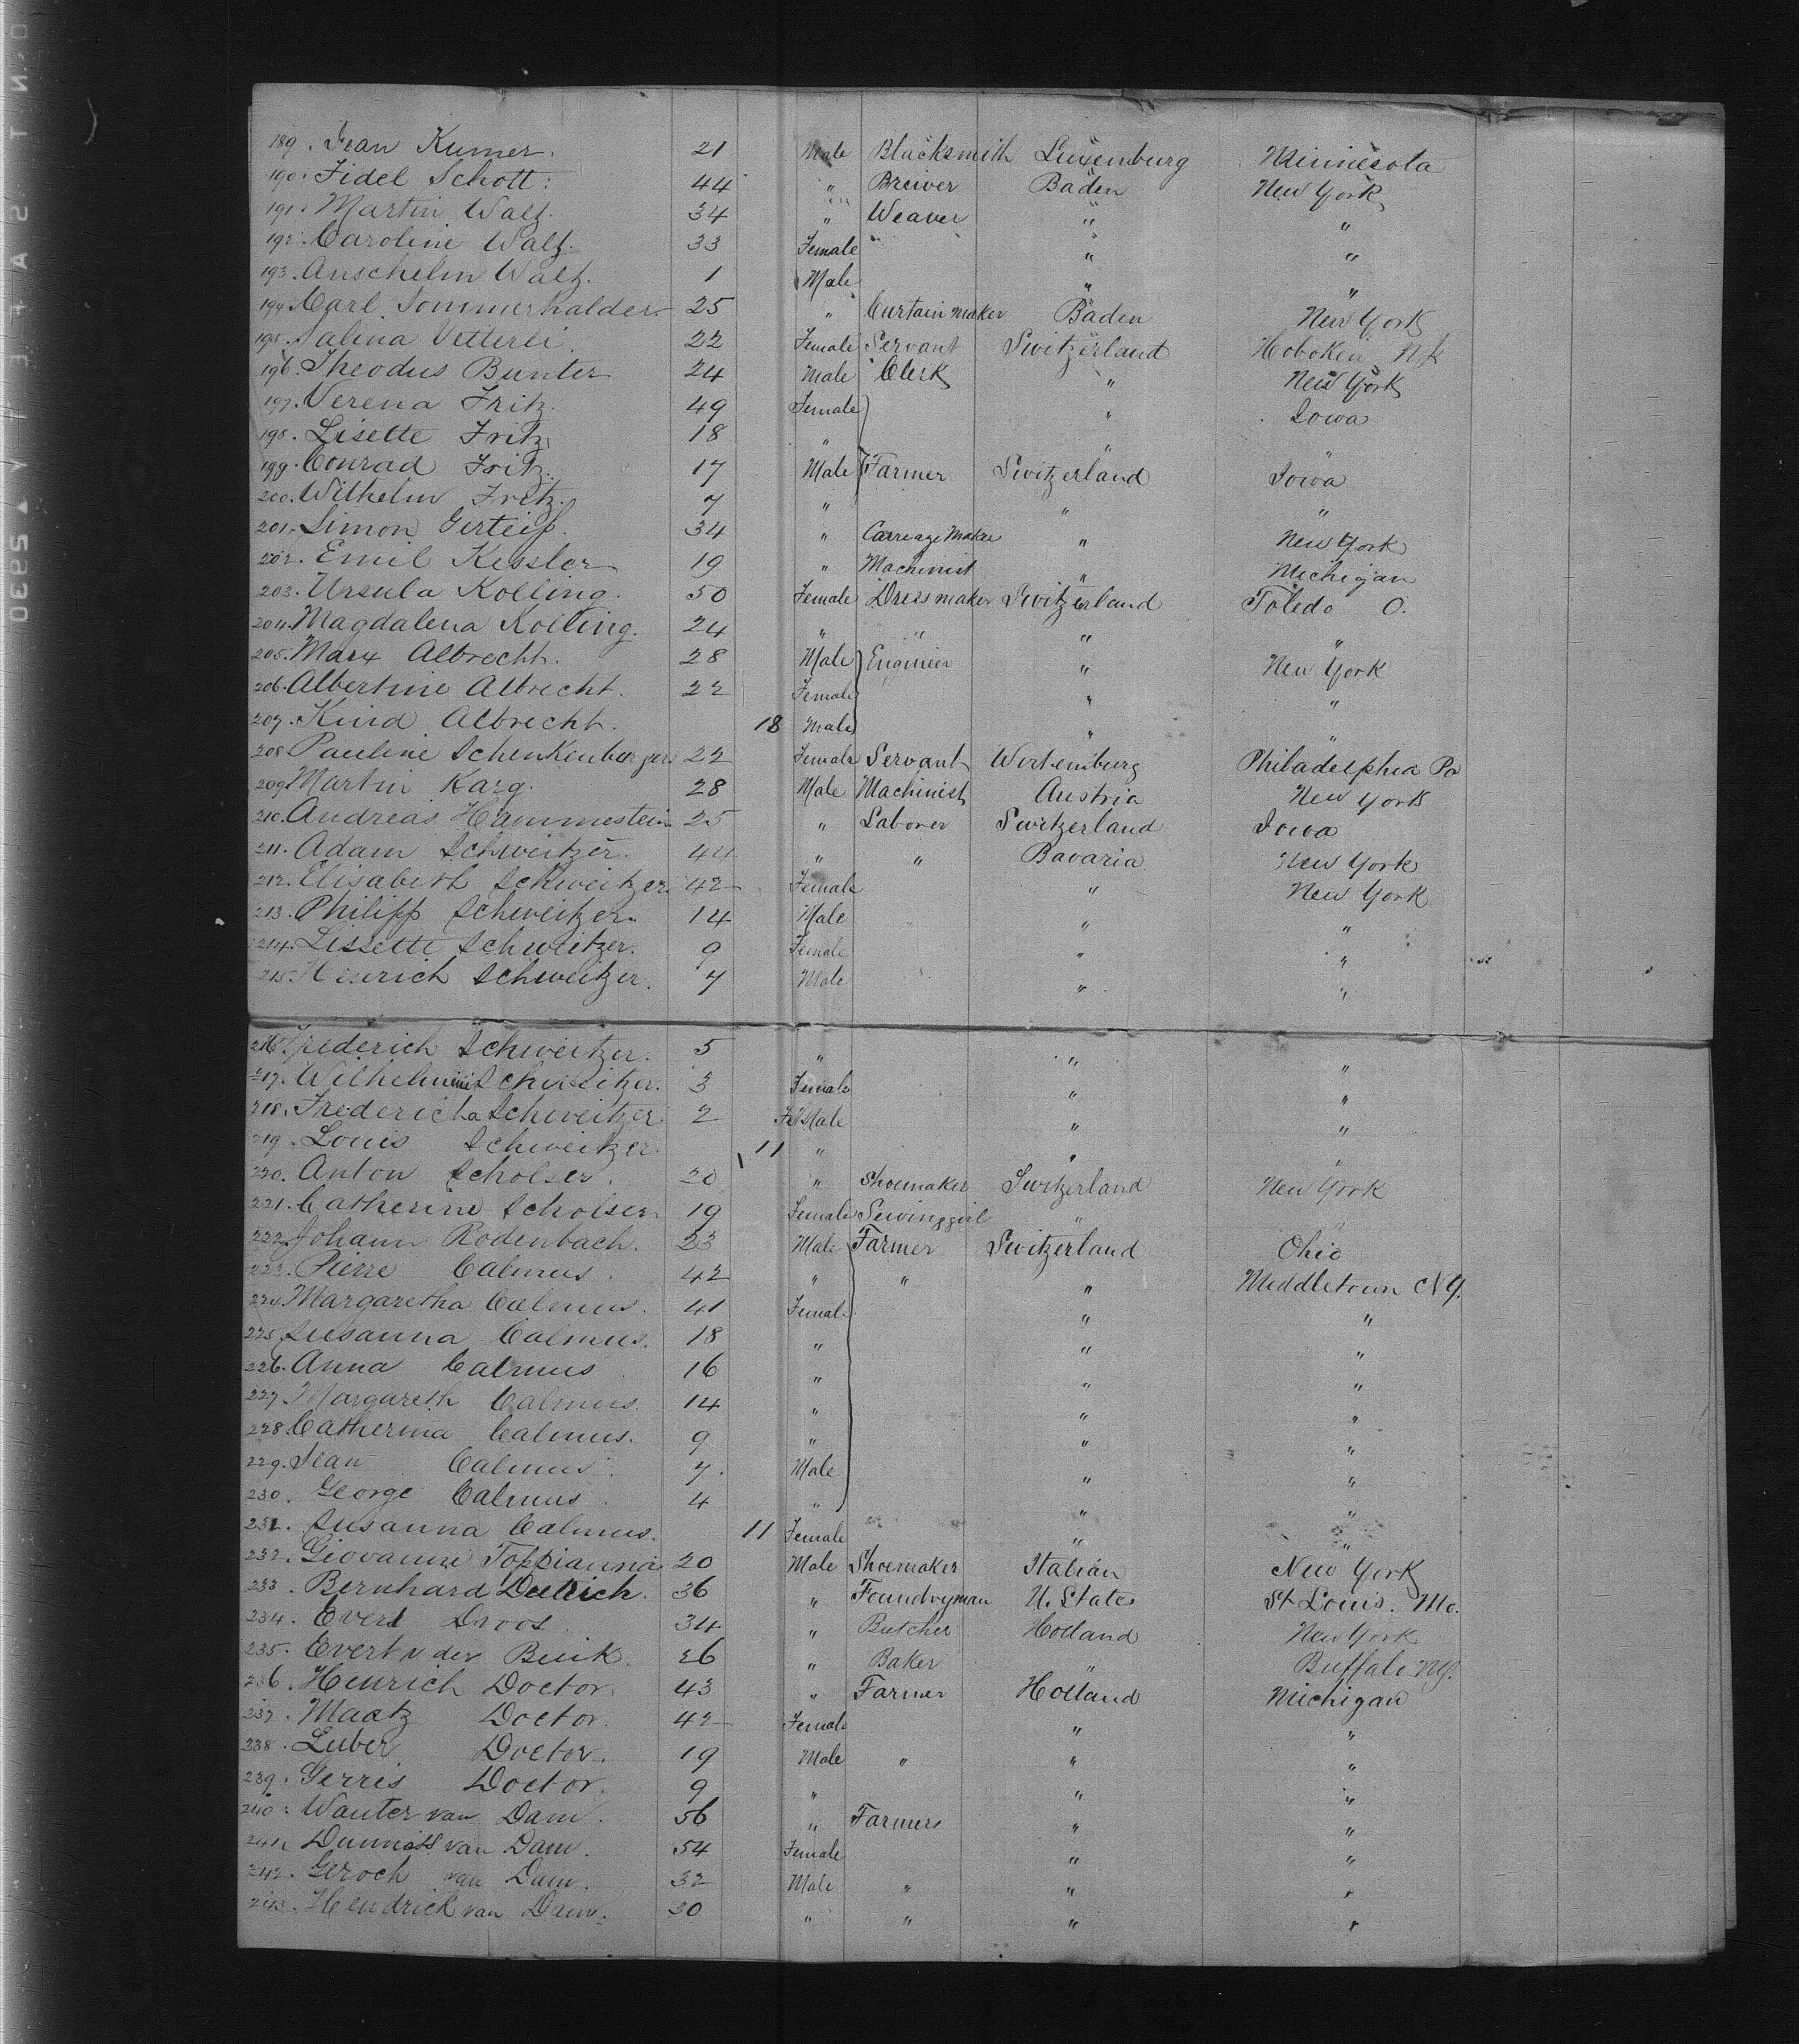 189. Jean Kumer. 21 Male Blacksmith Luxemburg Minnesota
190. Fidel Schott. 44 " Brewer Baden New York
191. Martin Walz. 34 " Weaver " "
192. Caroline Walz. 33 Female " "
193. Anschelm Walz. 1 Male " "
194. Carl Sommerhalder. 25 " Curtain maker Baden New York
195. Salina Vetterli 22 Female Servant Switzerland Hoboken NJ
196. Theodus Bunter 24 Male Clerk " New York
197. Verena Fritz. 49 Female " Iowa
198. Lisette Fritz 18 " " "
199. Conrad Fritz. 17 Male Farmer Switzerland Iowa
200. Wilhelm Fritz. 7 " " "
201. Simon 34 " Carriage Maker " New York
202. Emil Kessler 19 " Machinist " Michigan
203. Ursula Kolling. 50 Female Dressmaker Switzerland Toledo O.
204. Magdalena Kolling. 24 " " " "
205. Marx Albrecht. 28 Male Engineer " New York
206. Albertine Albrecht. 22 Female " "
207. Kind Albrecht. 18 Male " "
208. Pauline Schenkenberger 22 Female Servant Wirtemburg Philadelphia Pa
209. Martin Karg. 28 Male Machinist Austria New York
210. Andreas Hammestein 25 " Laborer Switzerland Iowa
211. Adam Schweitzer. 44 " " Bavaria New York
212. Elisabeth Schweitzer 42 Female " New York
213. Philipp Schweitzer. 14 Male " "
214. Lissette Schweitzer. 9 Female " "
215. Henrich Schweitzer. 7 Male " "
216. Frederich Schweitzer. 5 " " "
217. Schweitzer. 3 Female " "
218. Fredericha Schweitzer 2 FeMale " "
219. Louis Schweitzer 11 " " "
220. Anton Scholser. 20 " Shoemaker Switzerland New York
221. Catherine Scholser 19 Female Sewinggirl " "
222. Johann Rodenbach. 23 Male Farmer Switzerland Ohio
223. Pierre Calmus. 42 " " " Middletown NY.
224. Margaretha Calmus. 41 Female " "
225. Susanna Calmus. 18 " " "
226. Anna Calmus 16 " " "
227. Margareth Calmus. 14 " " "
228. Catherina Calmus. 9 " " "
229. Jean Calmus. 7. Male " "
230. George Calmus. 4 " " "
231. Susanna Calmus. 11 Female " "
232. Giovanni Toppianna 20 Male Shoemaker Italian New York
233. Bernhard Dietrich. 36 " Foundryman U. States St Louis. Mo.
234. Evert Droos. 34 " Butcher Holland New York
235. Evert v der 26 " Baker " Buffalo NY.
236. Heinrich Doctor. 43 " Farmer Holland Michigan
237. Maatz Doctor. 42 Female " "
238. Luber Doctor. 19 Male " " "
239. Gerris Doctor. 9 " " "
240. Wouter van Dam. 56 " Farmers " "
241. van Dam. 54 Female " "
242. Geroch van Dam. 32 Male " " "
243. Hendrick van Dam. 30 " " " "